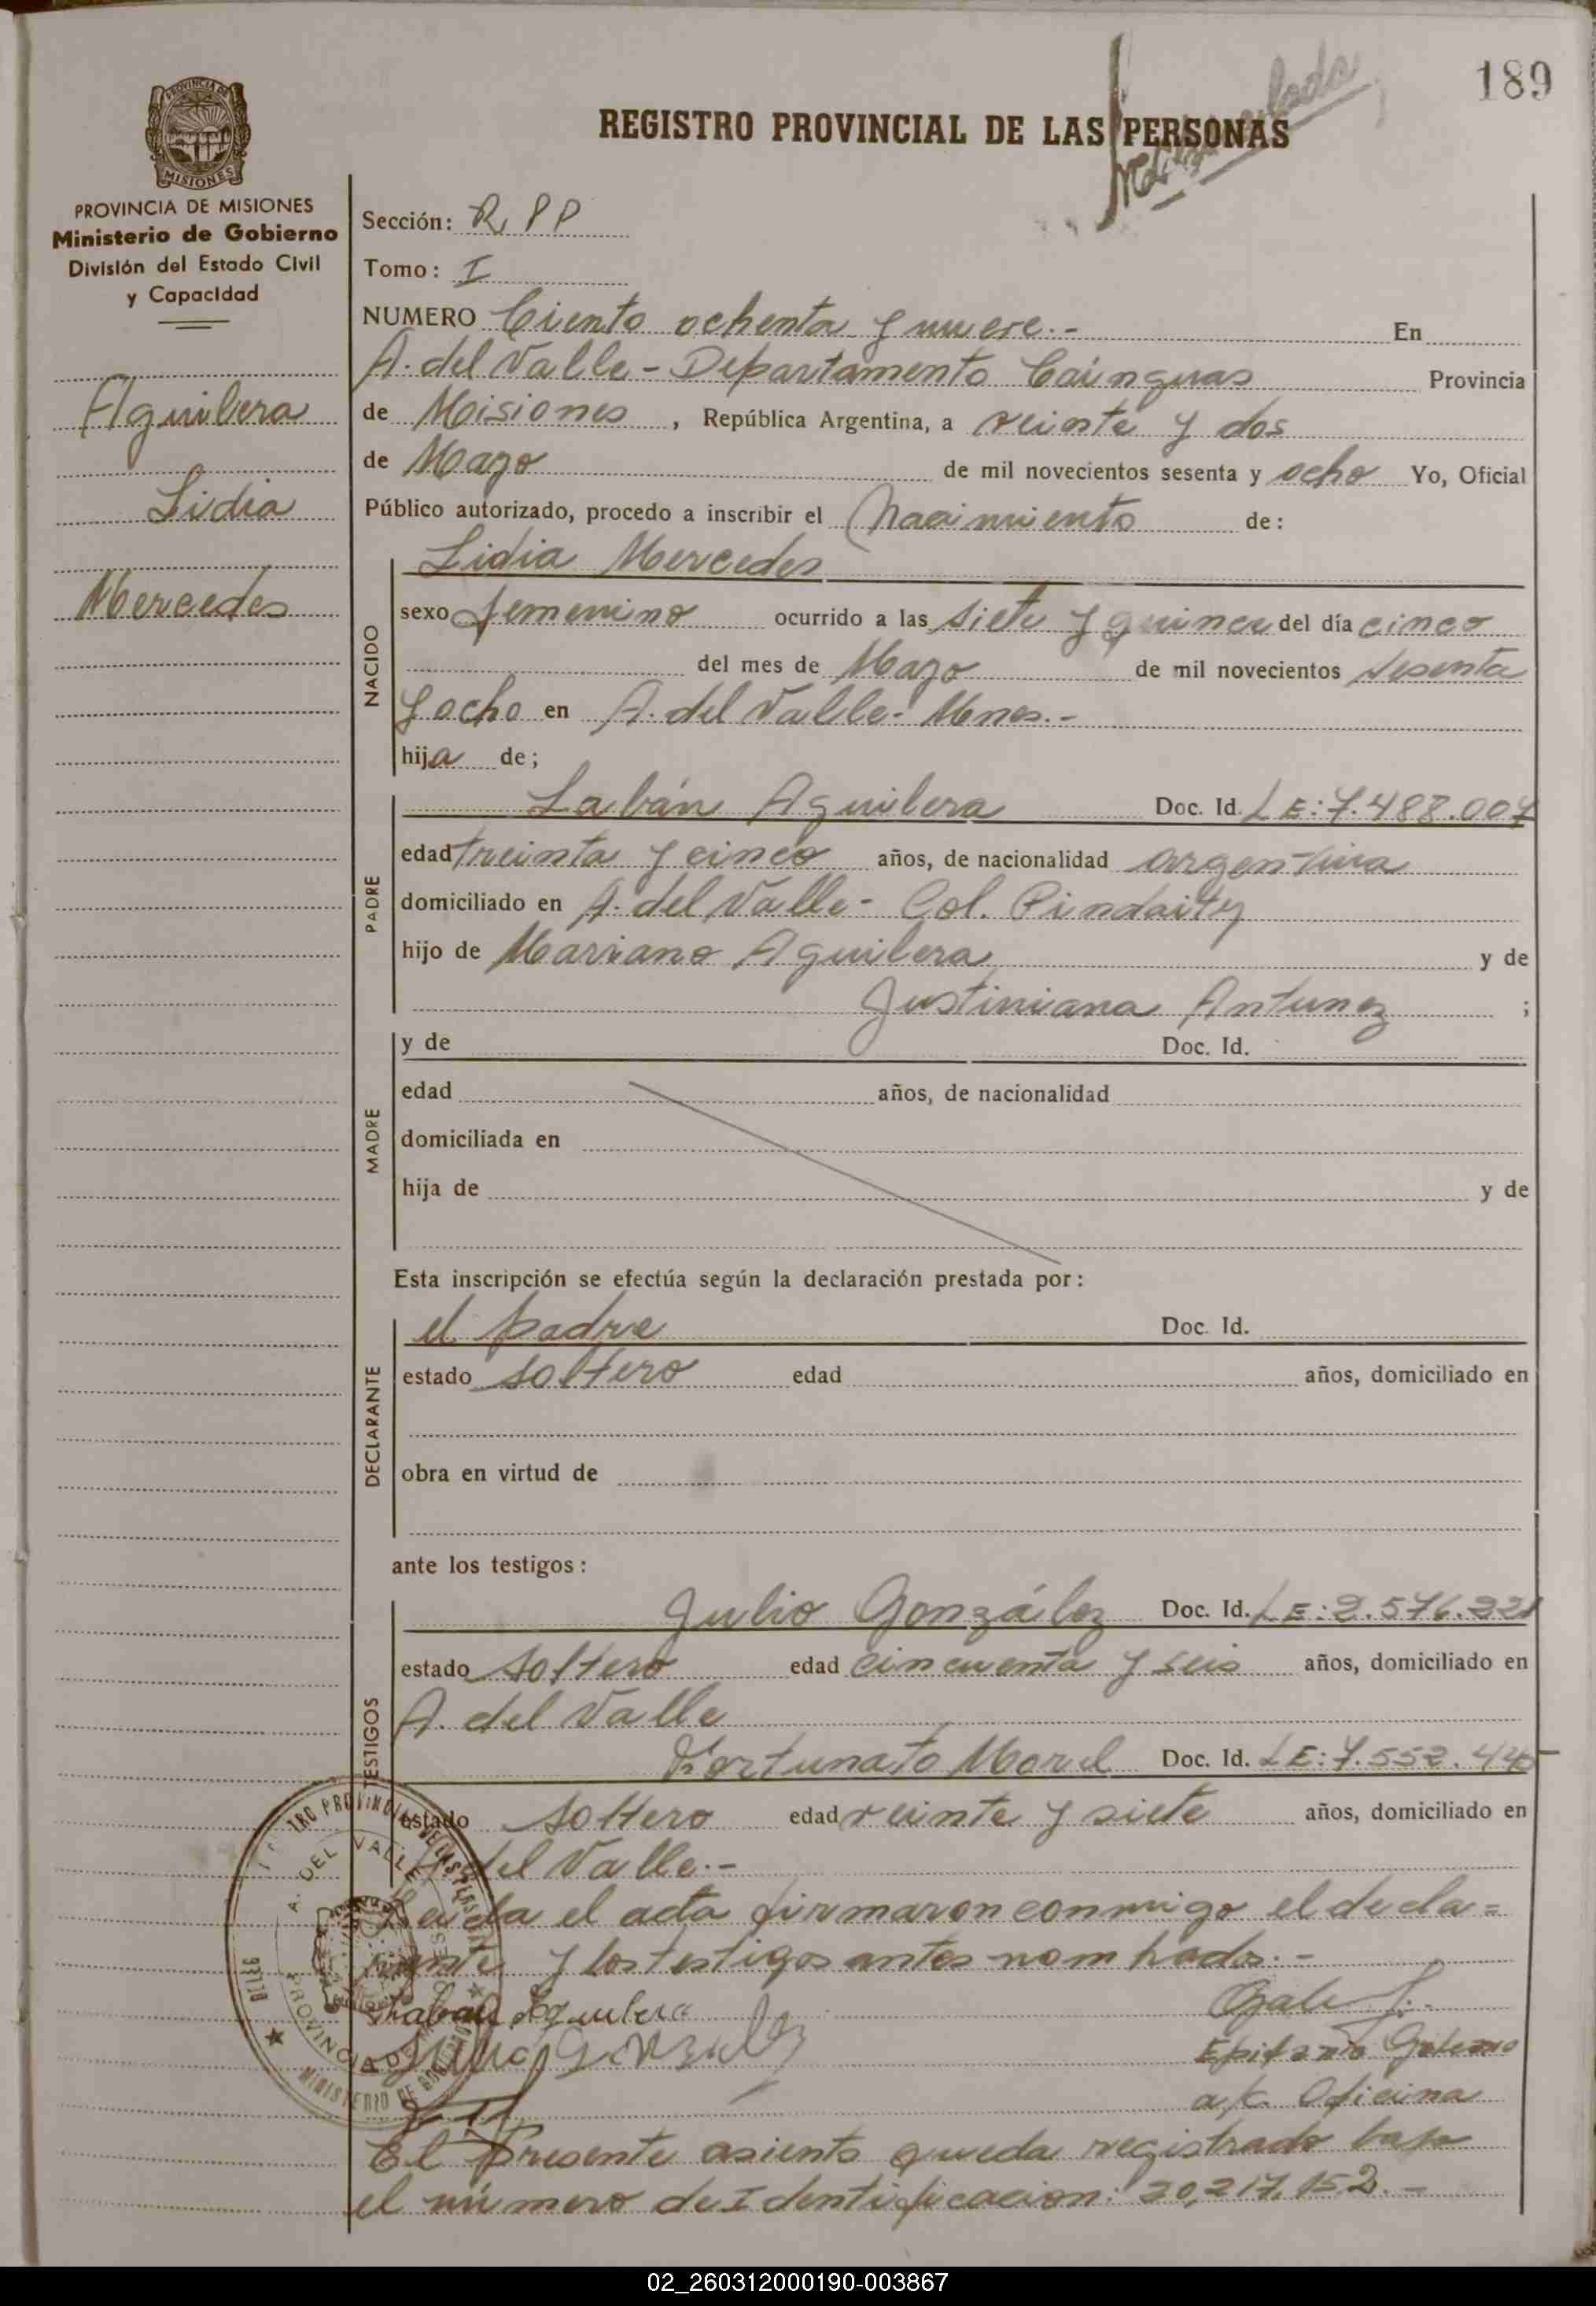 189
REGISTRO PROVINCIAL DE LAS PERSONAS
PROVINCIA DE MISIONES
MISIONES
PROVINCIA DE MISIONES
Ministerio de Gobierno
División del Estado Civil
y Capacidad
Aguilera
Lidia
Mercedes
Sección: R P P
Tomo: I
NUMERO Ciento ochenta y nueve.- En
A. del Valle - Departamento Cainguas Provincia
de Misiones, República Argentina, a veinte y dos
de Mayo de mil novecientos sesenta y ocho Yo, Oficial
Público autorizado, procedo a inscribir el Nacimiento de:
NACIDO
Lidia Mercedes
sexo femenino ocurrido a las siete y quince del día cinco
del mes de Mayo de mil novecientos sesenta
y ocho en A. del Valle - Mnes.-
hija de;
PADRE
Labán Aguilera Doc. Id. LE: 7.488.007
edad treinta y cinco años, de nacionalidad argentina
domiciliado en A. del Valle - Col. Pindaity
hijo de Mariano Aguilera y de
Justiniana Antunez ;
MADRE
y de Doc. Id.
edad años, de nacionalidad
domiciliada en
hija de y de
Esta inscripción se efectúa según la declaración prestada por:
DECLARANTE
el padre Doc. Id.
estado soltero edad años, domiciliado en
obra en virtud de
ante los testigos:
TESTIGOS
Julio González Doc. Id. LE: 2.576.221
estado soltero edad cincuenta y seis años, domiciliado en
A. del Valle
Fortunato Morel Doc. Id. LE: 7.552.440
estado soltero edad veinte y siete años, domiciliado en
A. del Valle.-
Leida el acta firmaron conmigo el decla=
rante y los testigos antes nombrados.-
Laban Aguilera
Julio Gonzalez
Epifanio Galeano
a/c. Oficina
El Presente asiento queda registrado bajo
el número de Identificacion: 20,217,152.-
02_260312000190-003867